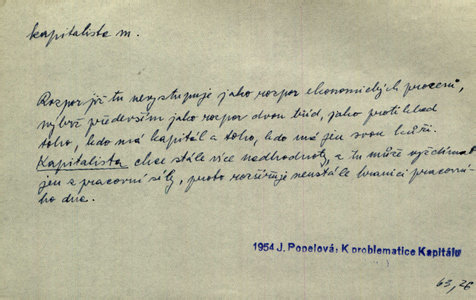 kapitalista m.
Rozpor již tu nevystupuje jako rozpor ekonomických procesů,
nýbrž především jako rozpor dvou tříd, jako protiklad
toho, kdo má kapitál a toho, kdo má jen svou kůži.
Kapitalista chce stále více nadhodnoty, a tu může vyždímat
jen z pracovní síly, proto rozšiřuje neustále hranici pracovní-
ho dne.
1954 J. Popelová: K problematice Kapitálu
63, 26